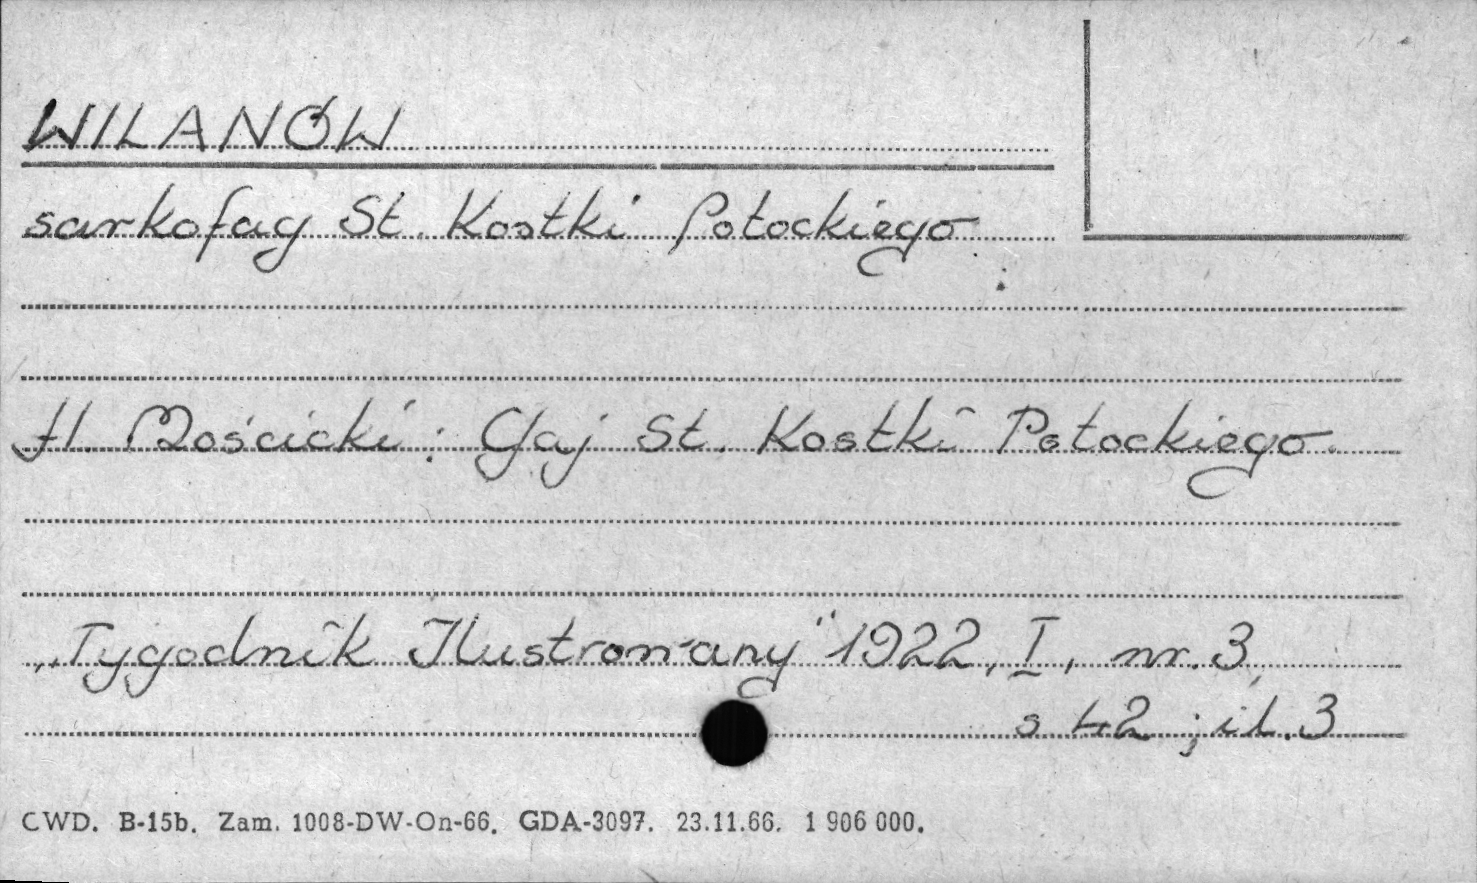 WILANÓW
sarkofag St. Kostki Potockiego
H. Mościcki: Gaj St. Kostki Potockiego.
„Tygodnik Ilustrowany" 1922, I, nr. 3,
s 42 ; il. 3
CWD. B-15b. Zam. 1008-DW-On-66. GDA-3097. 23.11.66. 1 906 000.